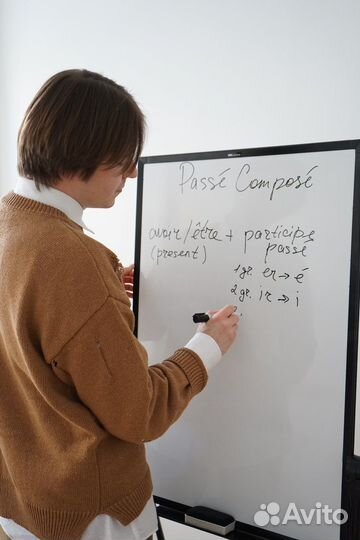 Passé Composé
avoir/être + participe
passé
(present)
1 gr. er → é
2 gr. ir → i
Avito